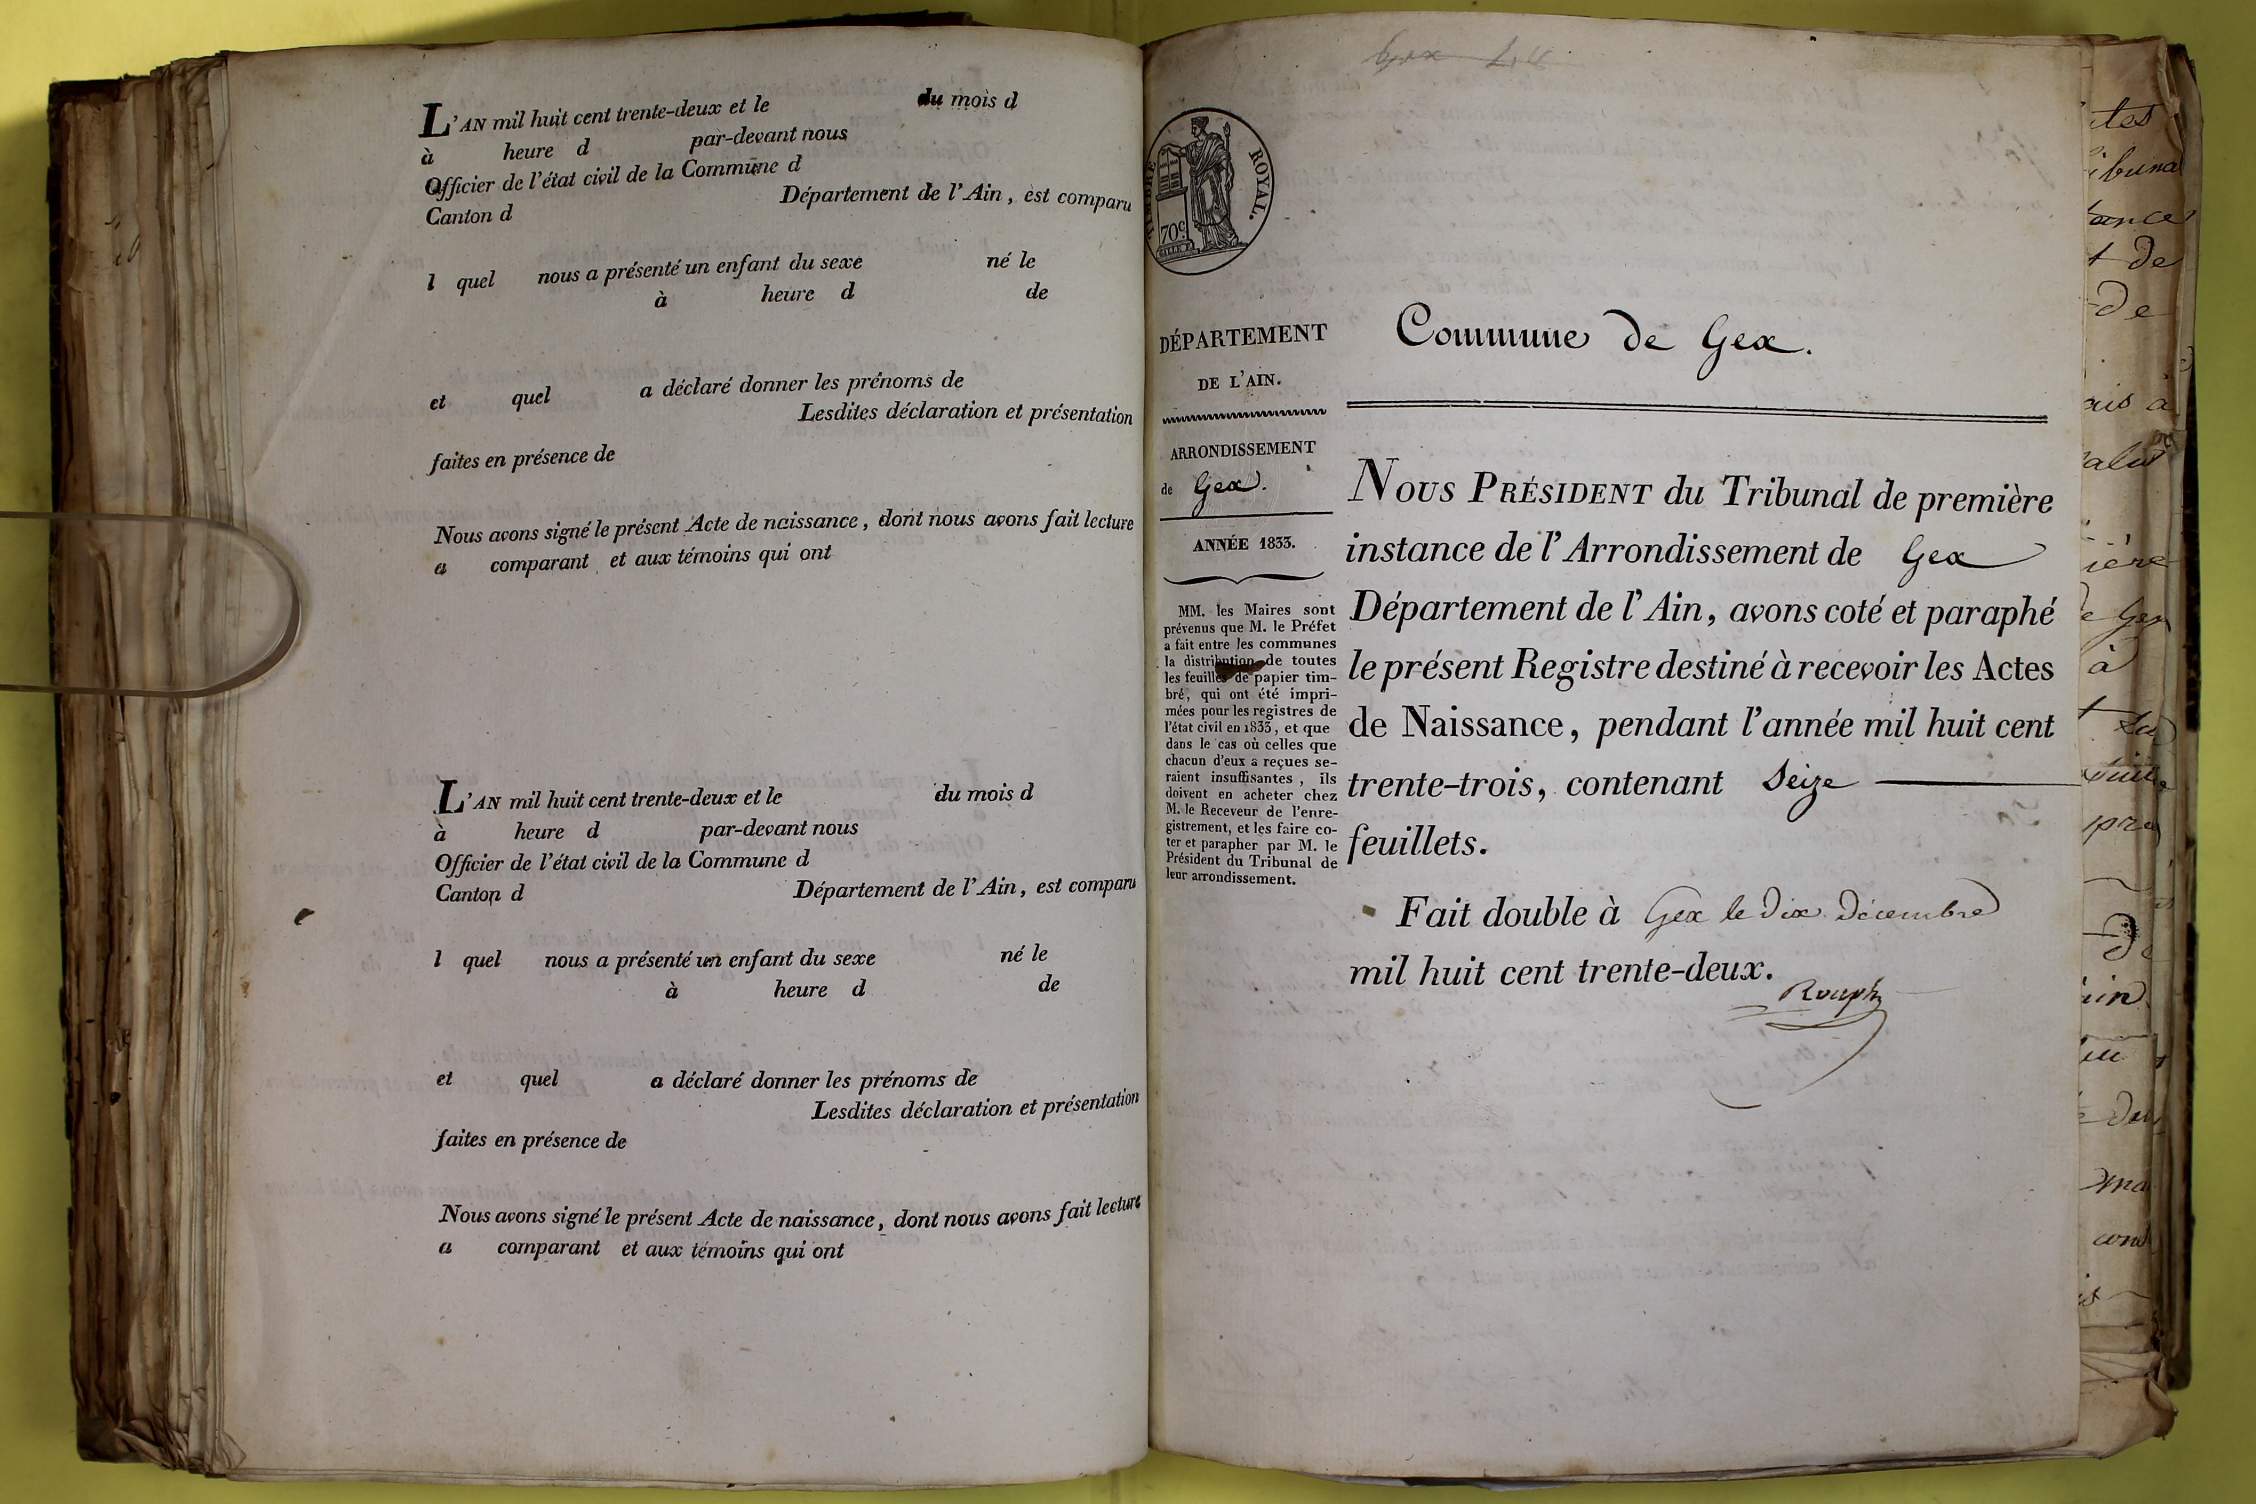 L'AN mil huit cent trente-deux et le du mois d
à heure d par-devant nous
Officier de l'état civil de la Commune d
Canton d Département de l'Ain, est comparu
l quel nous a présenté un enfant du sexe né le
à heure d de
et quel a déclaré donner les prénoms de
Lesdites déclaration et présentation
faites en présence de
Nous avons signé le présent Acte de naissance, dont nous avons fait lecture
a comparant et aux témoins qui ont
L'AN mil huit cent trente-deux et le du mois d
à heure d par-devant nous
Officier de l'état civil de la Commune d
Canton d Département de l'Ain, est comparu
l quel nous a présenté un enfant du sexe né le
à heure d de
et quel a déclaré donner les prénoms de
Lesdites déclaration et présentation
faites en présence de
Nous avons signé le présent Acte de naissance, dont nous avons fait lecture
a comparant et aux témoins qui ont
Gex
TIMBRE ROYAL.
70c
DÉPARTEMENT
DE L'AIN.
ARRONDISSEMENT
de Gex.
ANNÉE 1833.
MM. les Maires sont
prévenus que M. le Préfet
a fait entre les communes
la distribution de toutes
les feuilles de papier tim-
bré, qui ont été impri-
mées pour les registres de
l'état civil en 1833, et que
dans le cas où celles que
chacun d'eux a reçues se-
raient insuffisantes, ils
doivent en acheter chez
M. le Receveur de l'enre-
gistrement, et les faire co-
ter et parapher par M. le
Président du Tribunal de
leur arrondissement.
Commune de Gex.
NOUS PRÉSIDENT du Tribunal de première
instance de l'Arrondissement de Gex
Département de l'Ain, avons coté et paraphé
le présent Registre destiné à recevoir les Actes
de Naissance, pendant l'année mil huit cent
trente-trois, contenant Seize
feuillets.
Fait double à Gex le dix Décembre
mil huit cent trente-deux.
Rouph